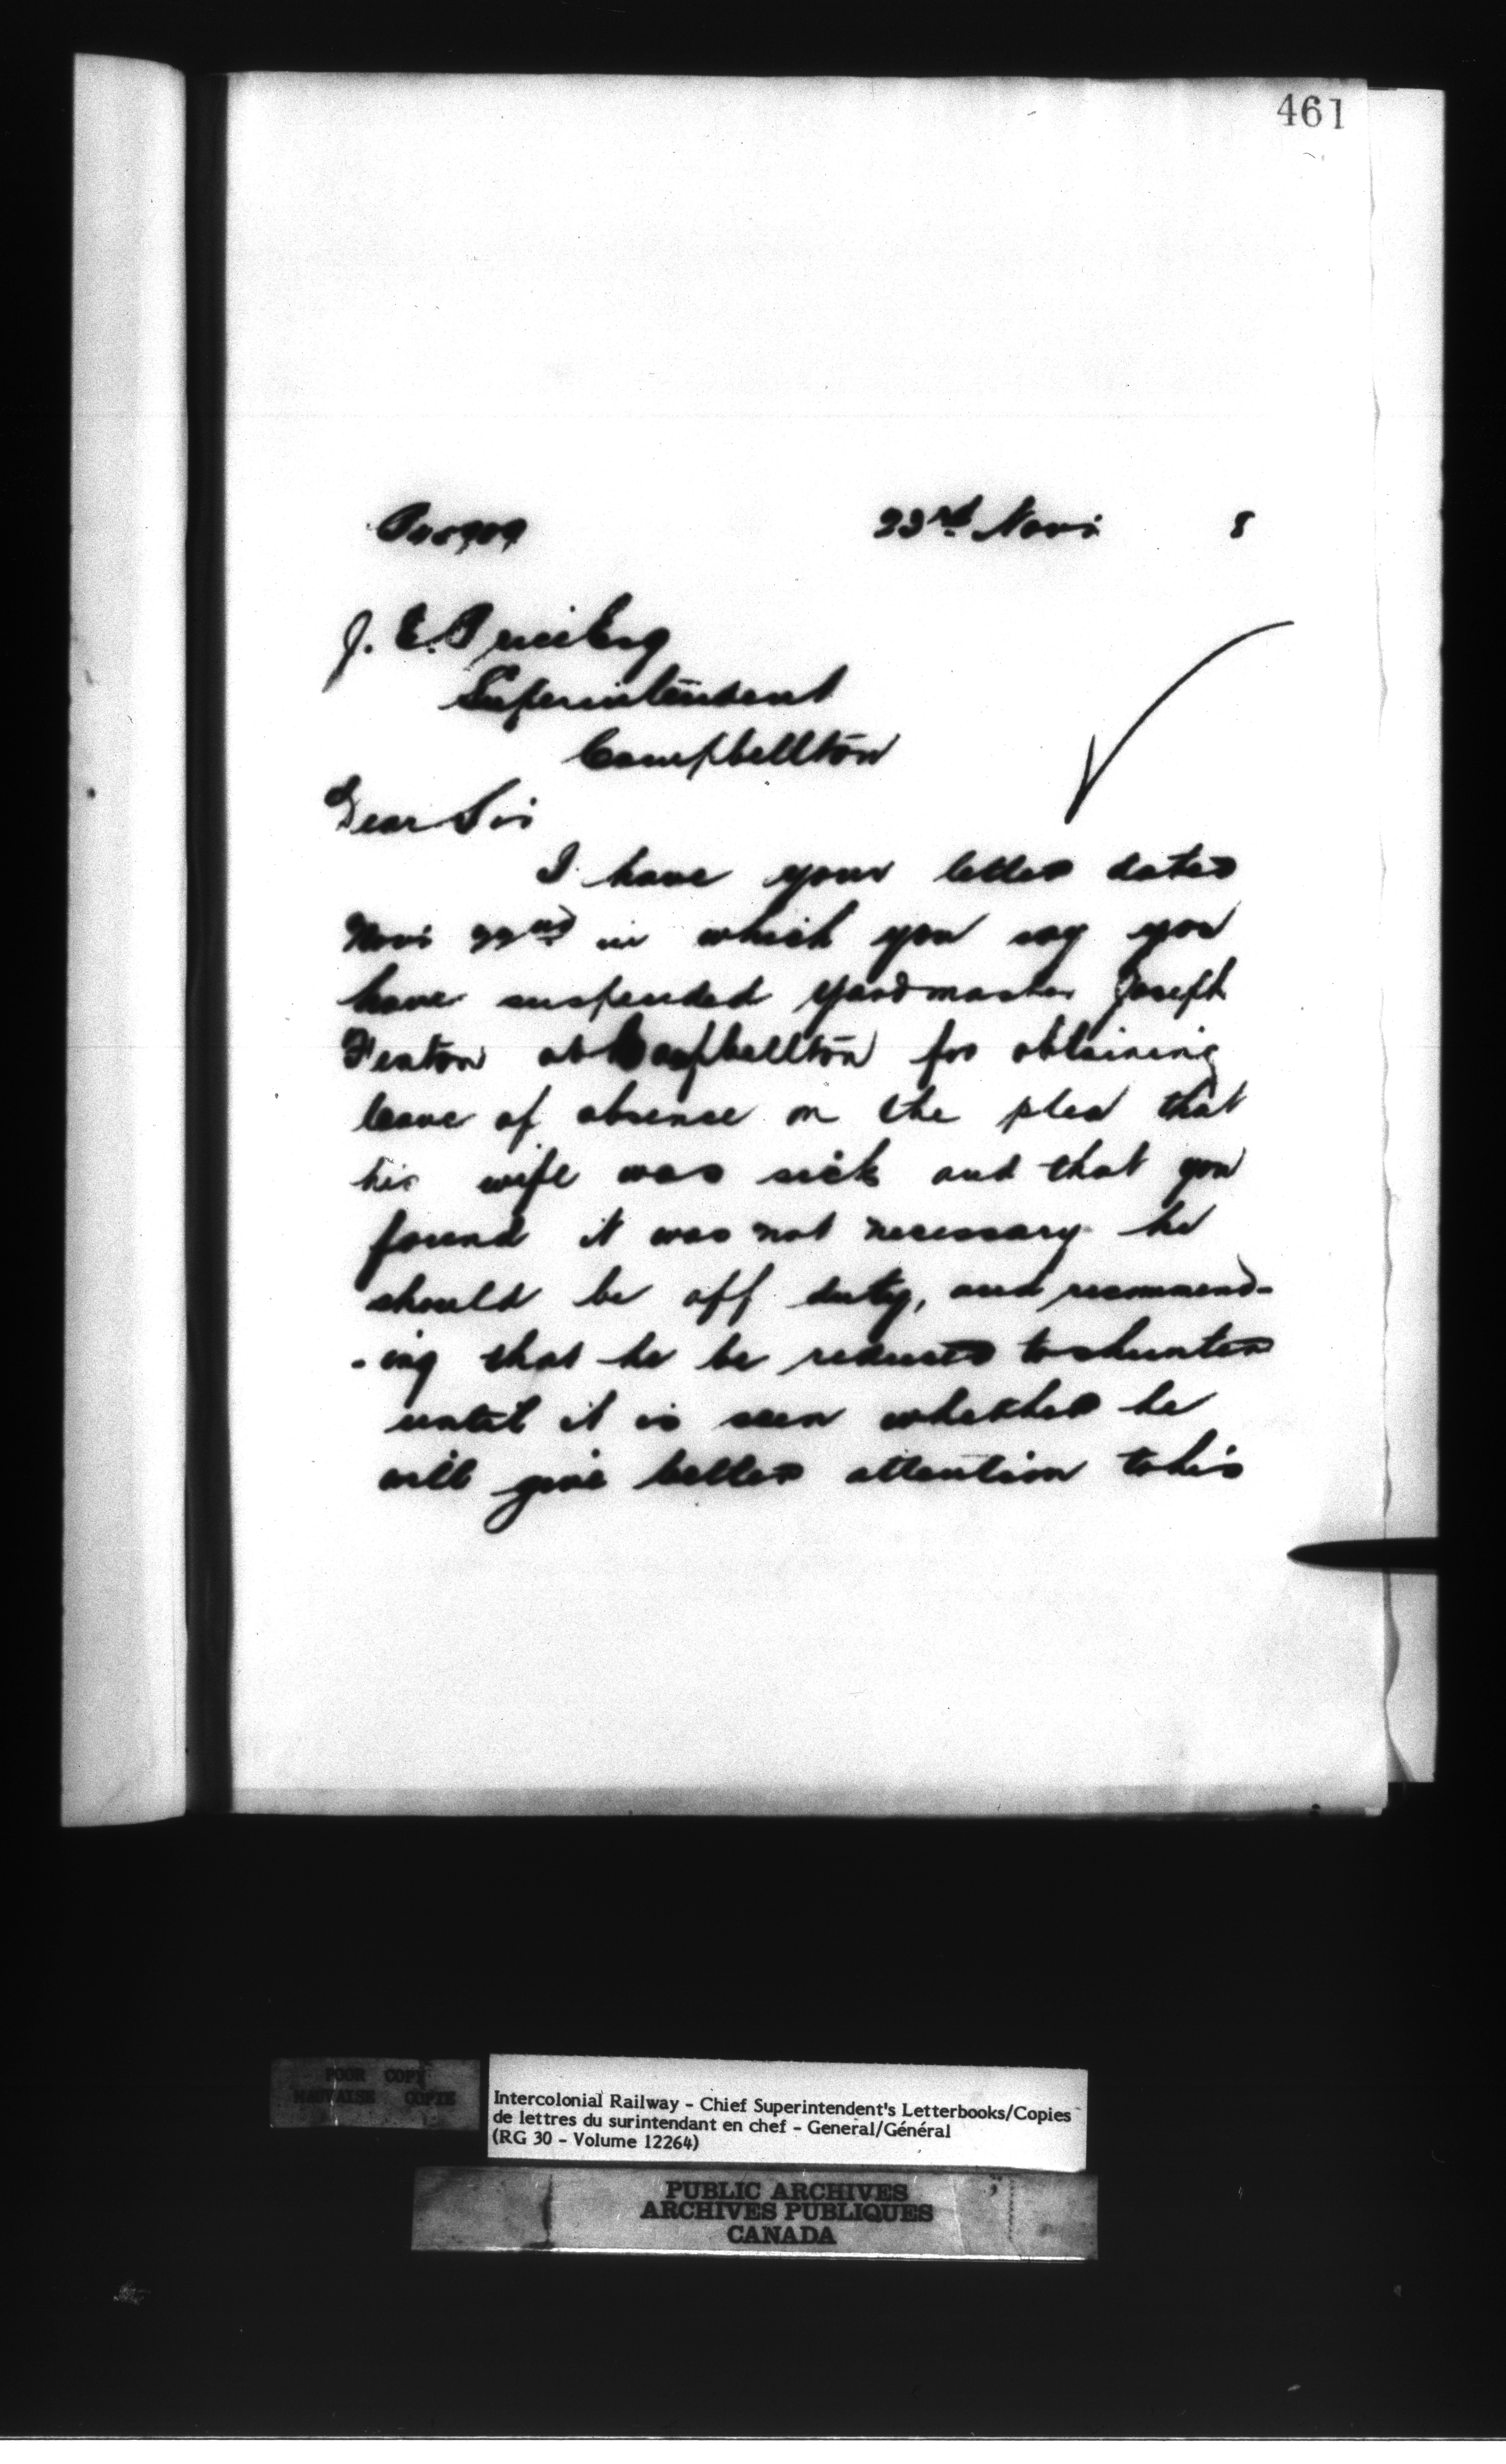 461
23rd Novr 8
J. E. Price Esq
Superintendent
Campbellton
Dear Sir
I have your letter dated
Novr 22nd in which you say you
have suspended Yardmaster Joseph
Fenton at Campbellton for obtaining
leave of absence on the plea that
his wife was sick and that you
found it was not necessary he
should be off duty, and recommend-
-ing that he be reduced to shunter
until it is seen whether he
will give better attention to his
POOR COPY
MAUVAISE COPIE
Intercolonial Railway - Chief Superintendent's Letterbooks/Copies
de lettres du surintendant en chef - General/Général
(RG 30 - Volume 12264)
PUBLIC ARCHIVES
ARCHIVES PUBLIQUES
CANADA